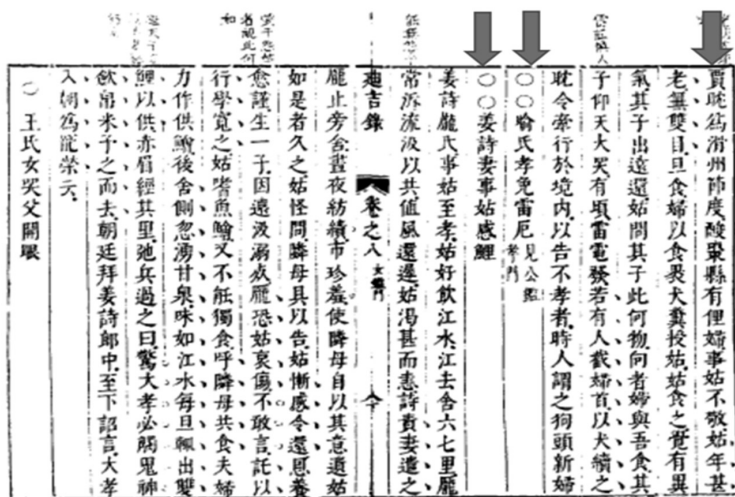 賈耽爲滑州節度酸棗縣有俚婦事姑不敬姑年甚
老無雙目旦食婦以食裹犬糞授姑姑食之覺有異
氣其子出遠還姑問其子此何物向者婦與吾食其
子仰天大哭有頃雷電發若有人截婦首以犬續之
耽令牽行於境內以告不孝者時人謂之狗頭新婦
○○喻氏孝免雷厄 見公鑑孝門
○○姜詩妻事姑感鯉
姜詩龐氏事姑至孝姑好飲江水江去舍六七里龐
常泝流汲以共值風還遲姑渴甚而恚詩責妻遣之
迪吉錄 卷之八 女鑑門
龐止旁舍晝夜紡績市珍羞使隣母自以其意遺姑
如是者久之姑怪問隣母具以告姑慚感令還恩養
愈謹生一子因遠汲溺死龐恐姑哀傷不敢言託以
行學寬之姑嗜魚鱠又不能獨食呼隣母共食夫婦
力作供鱠後舍側忽湧甘泉味如江水每旦輒出雙
鯉以供赤眉經其里弛兵過之曰驚大孝必觸鬼神
帛米予之而去朝廷拜姜詩郎中至下詔言大孝
入朝爲寵榮云
○ 王氏女哭父開眼